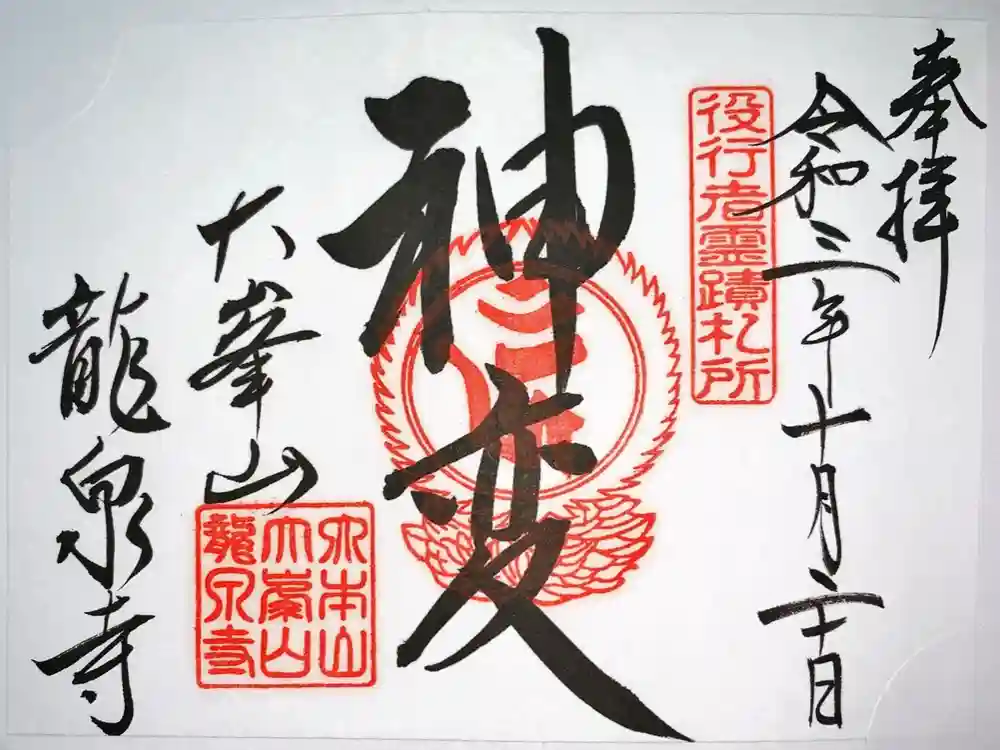 奉拝
令和三年十月二十日
役行者霊蹟札所
神変
大峯山
大本山
大峯山
龍泉寺
龍泉寺